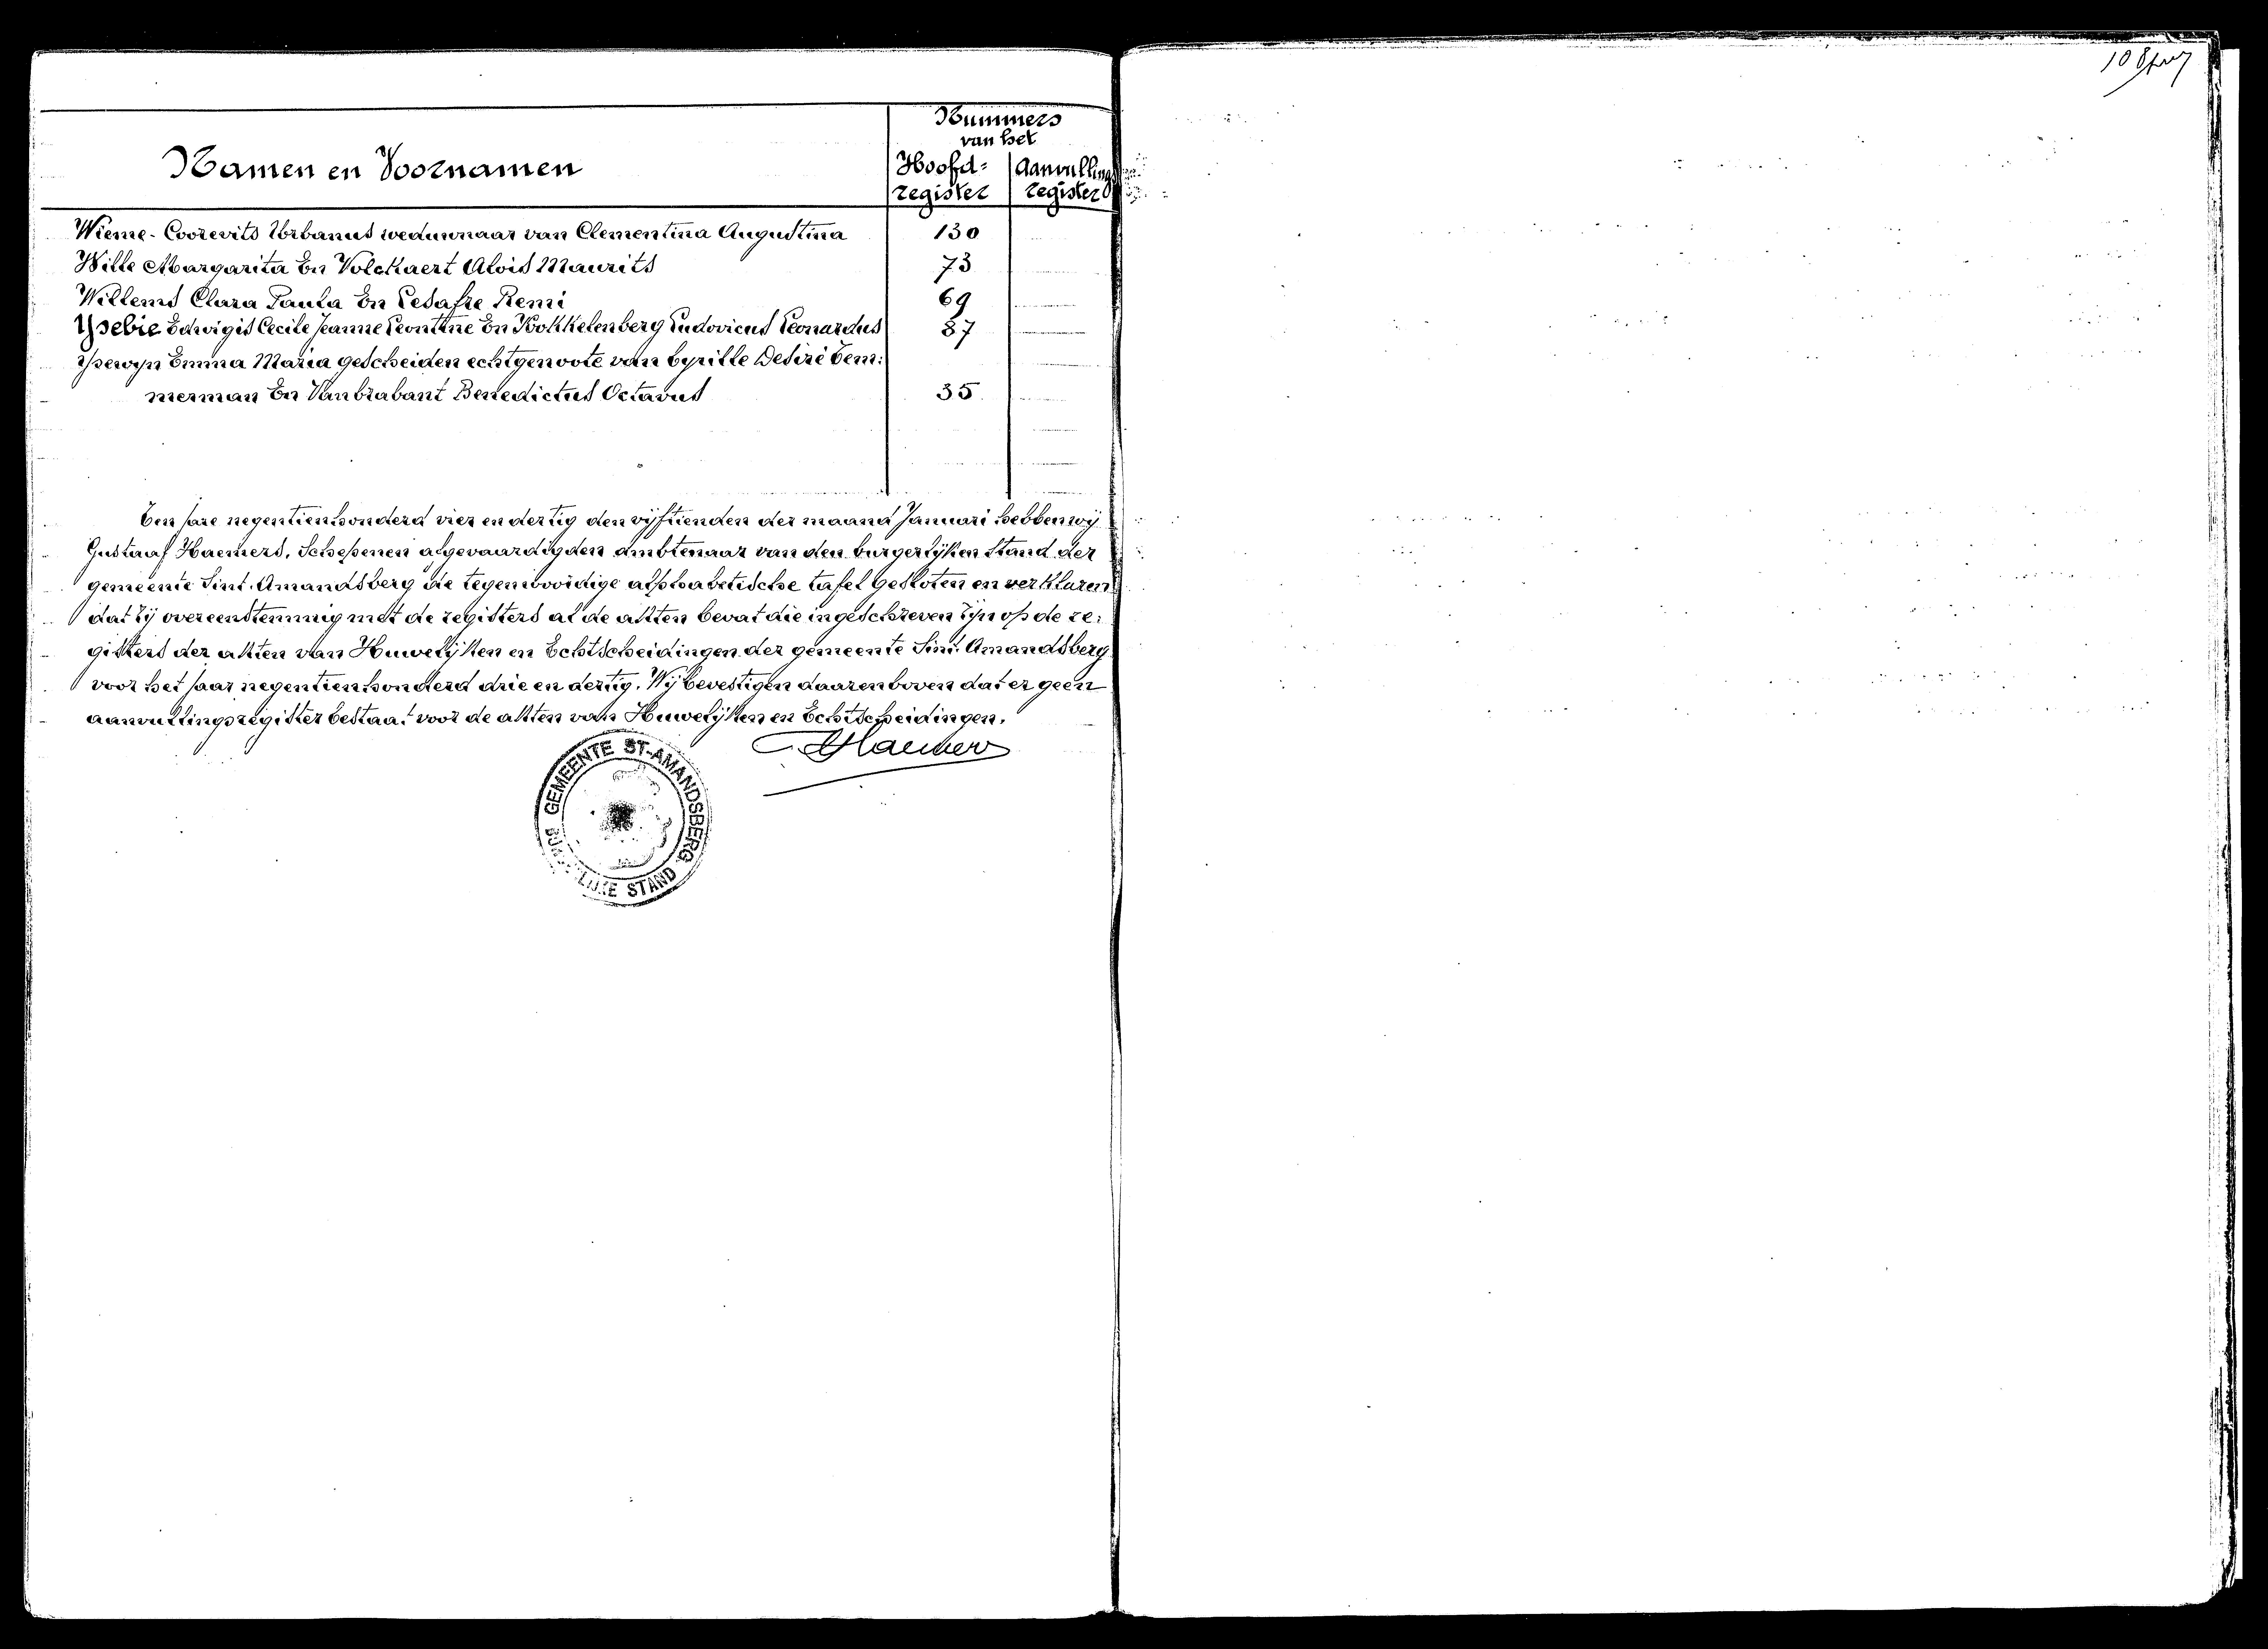 Nummers
van het
Namen en Voornamen
Hoofd= Aanvullings
register register
Wieme-Coorevits Urbanus weduwnaar van Clementina Augustina 130
Wille Margarita En Volckaert Alois Maurits 73
Willems Clara Paula En Lesafre Remi 69
Ysebie Edwigis Cecile Jeanne Leontine En Kokkelenberg Ludovicus Leonardus 87
Ysewyn Emma Maria gescheiden echtgenoote van Cyrille Desiré Tem:
merman En Vanbrabant Benedictus Octavus 35
Ten jare negentienhonderd vier en dertig den vijftienden der maand Januari hebben wij
Gustaaf Haemers, Schepenen afgevaardigden ambtenaar van den burgerlijken Stand der
gemeente Sint-Amandsberg de tegenwoordige alphabetische tafel gesloten en verklaren
dat zij overeenstemmig met de registers al de akten bevat die ingeschreven zijn op de re:
gisters der akten van Huwelijken en Echtscheidingen der gemeente Sint-Amandsberg
voor het jaar negentienhonderd drie en dertig. Wij bevestigen daarenboven dat er geen
aanvullingsregister bestaat voor de akten van Huwelijken en Echtscheidingen.
G. Haemers
GEMEENTE ST-AMANDSBERG
LIJKE STAND